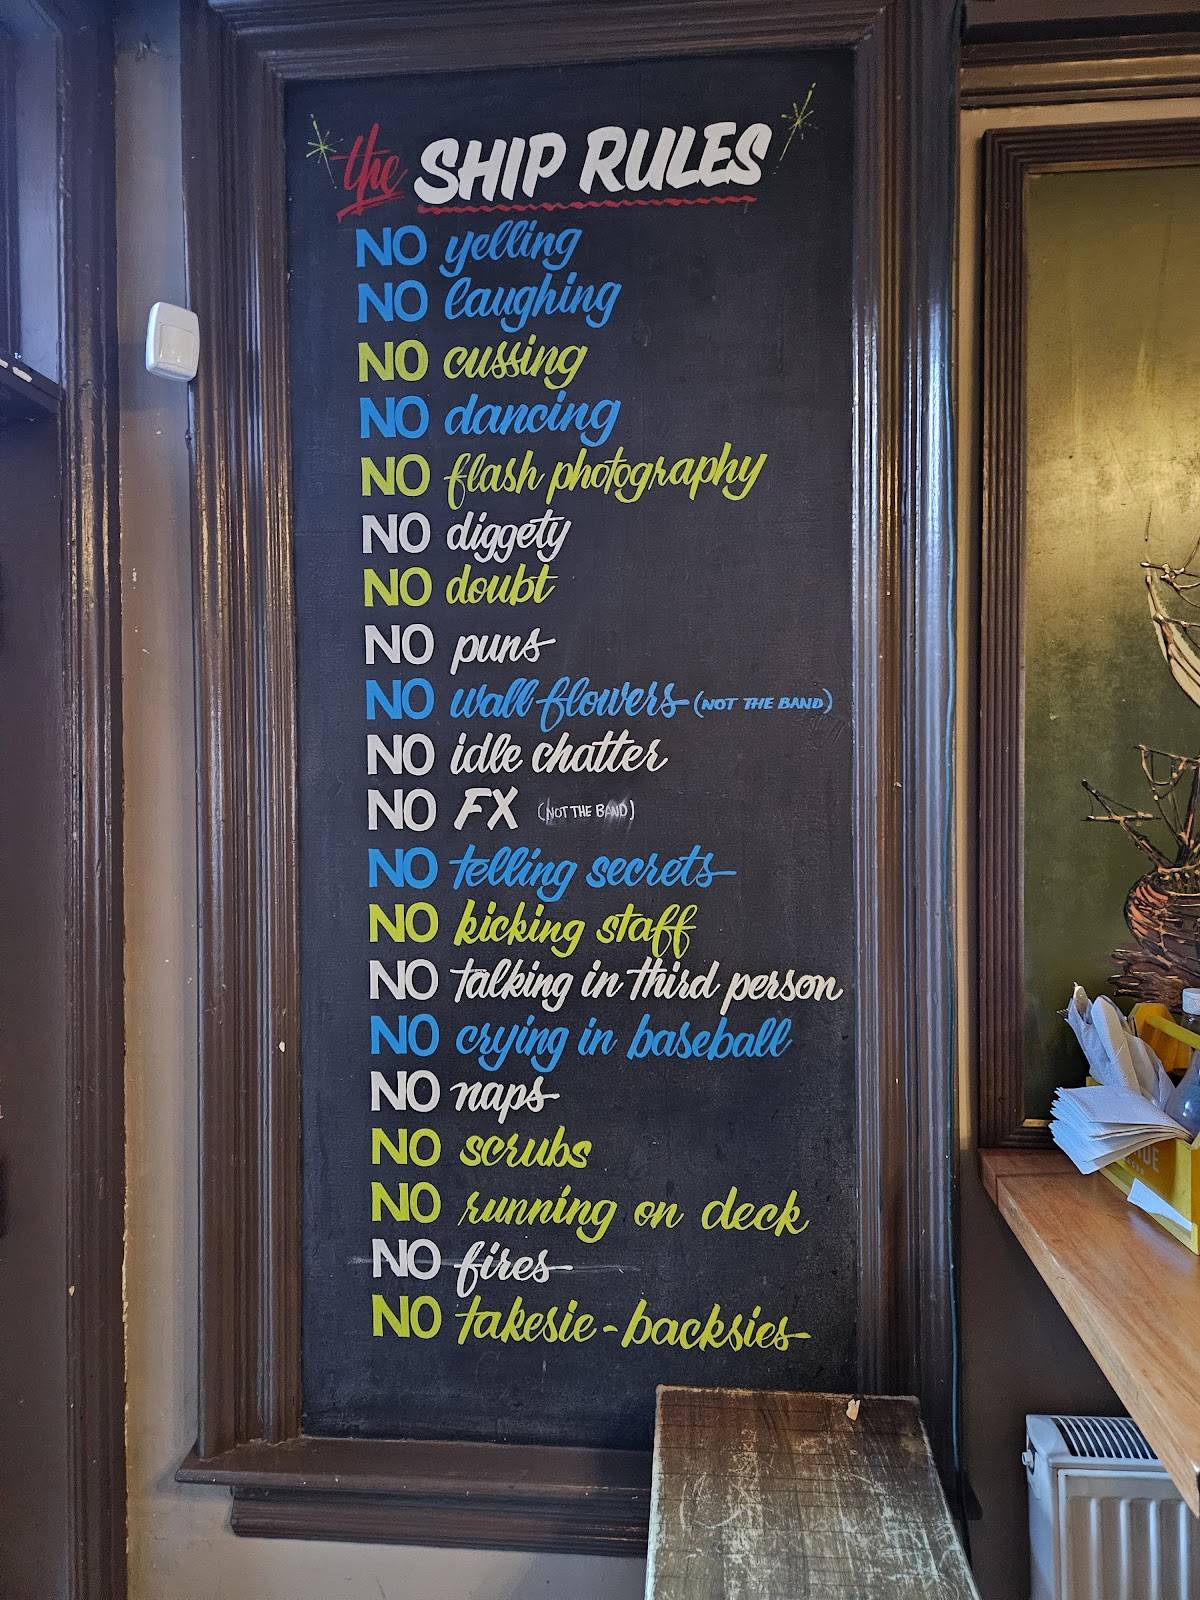 the SHIP RULES
NO yelling
NO laughing
NO cussing
NO dancing
NO flash photography
NO diggety
NO doubt
NO puns
NO wall-flowers (NOT THE BAND)
NO idle chatter
NO FX (NOT THE BAND)
NO telling secrets
NO kicking staff
NO talking in third person
NO crying in baseball
NO naps
NO scrubs
NO running on deck
NO fires
NO takesie-backsies